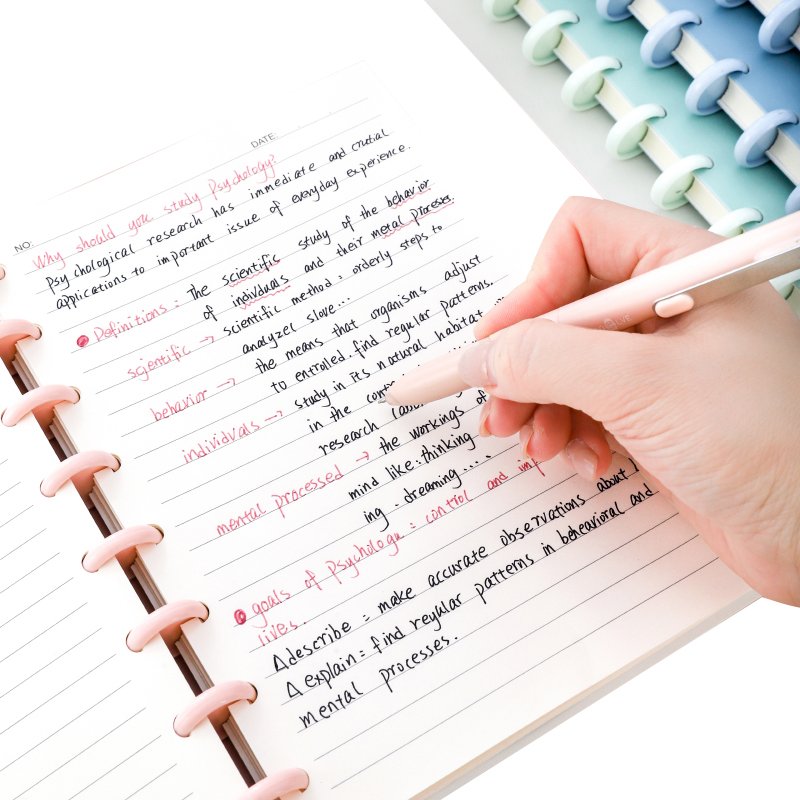 DATE:
NO:
Why should you study Psychology?
Psychological research has immediate and crutial
applications to important issue of everyday experience.
Definitions : The scientific study of the behavior
of indivduals and their metal Processes.
scientific → scientific method : orderly steps to
analyzel slove...
behavior → the means that organisms adjust
to entrolled. find regular patterns.
individvals → study in its natural habitat
in the
research
mental processed → the workings of
mind like: thinking
ing . dreaming....
goals of Psychology : control and
lives.
Δ describe : make accurate observations about
Δ explain : find reyular patterns in beheavioral and
mental processes.